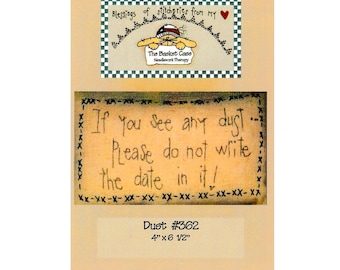 Blessings of stitcheries from my
The Basket Case
Needlework Therapy
If you see any dust...
Please do not write
the date in it!
Dust #362
4" x 6 1/2"